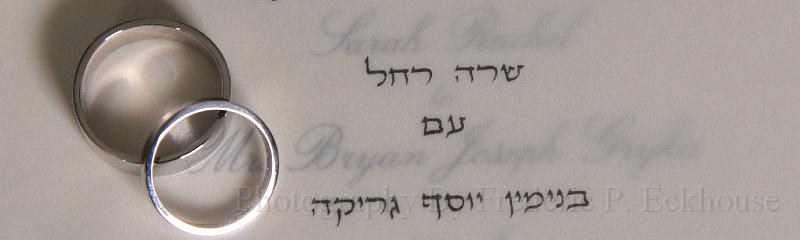 Sarah Rachel
שרה רחל
to
עם
Mr. Bryan Joseph
בנימין יוסף גריקה
Photography By Frederic P. Eckhouse